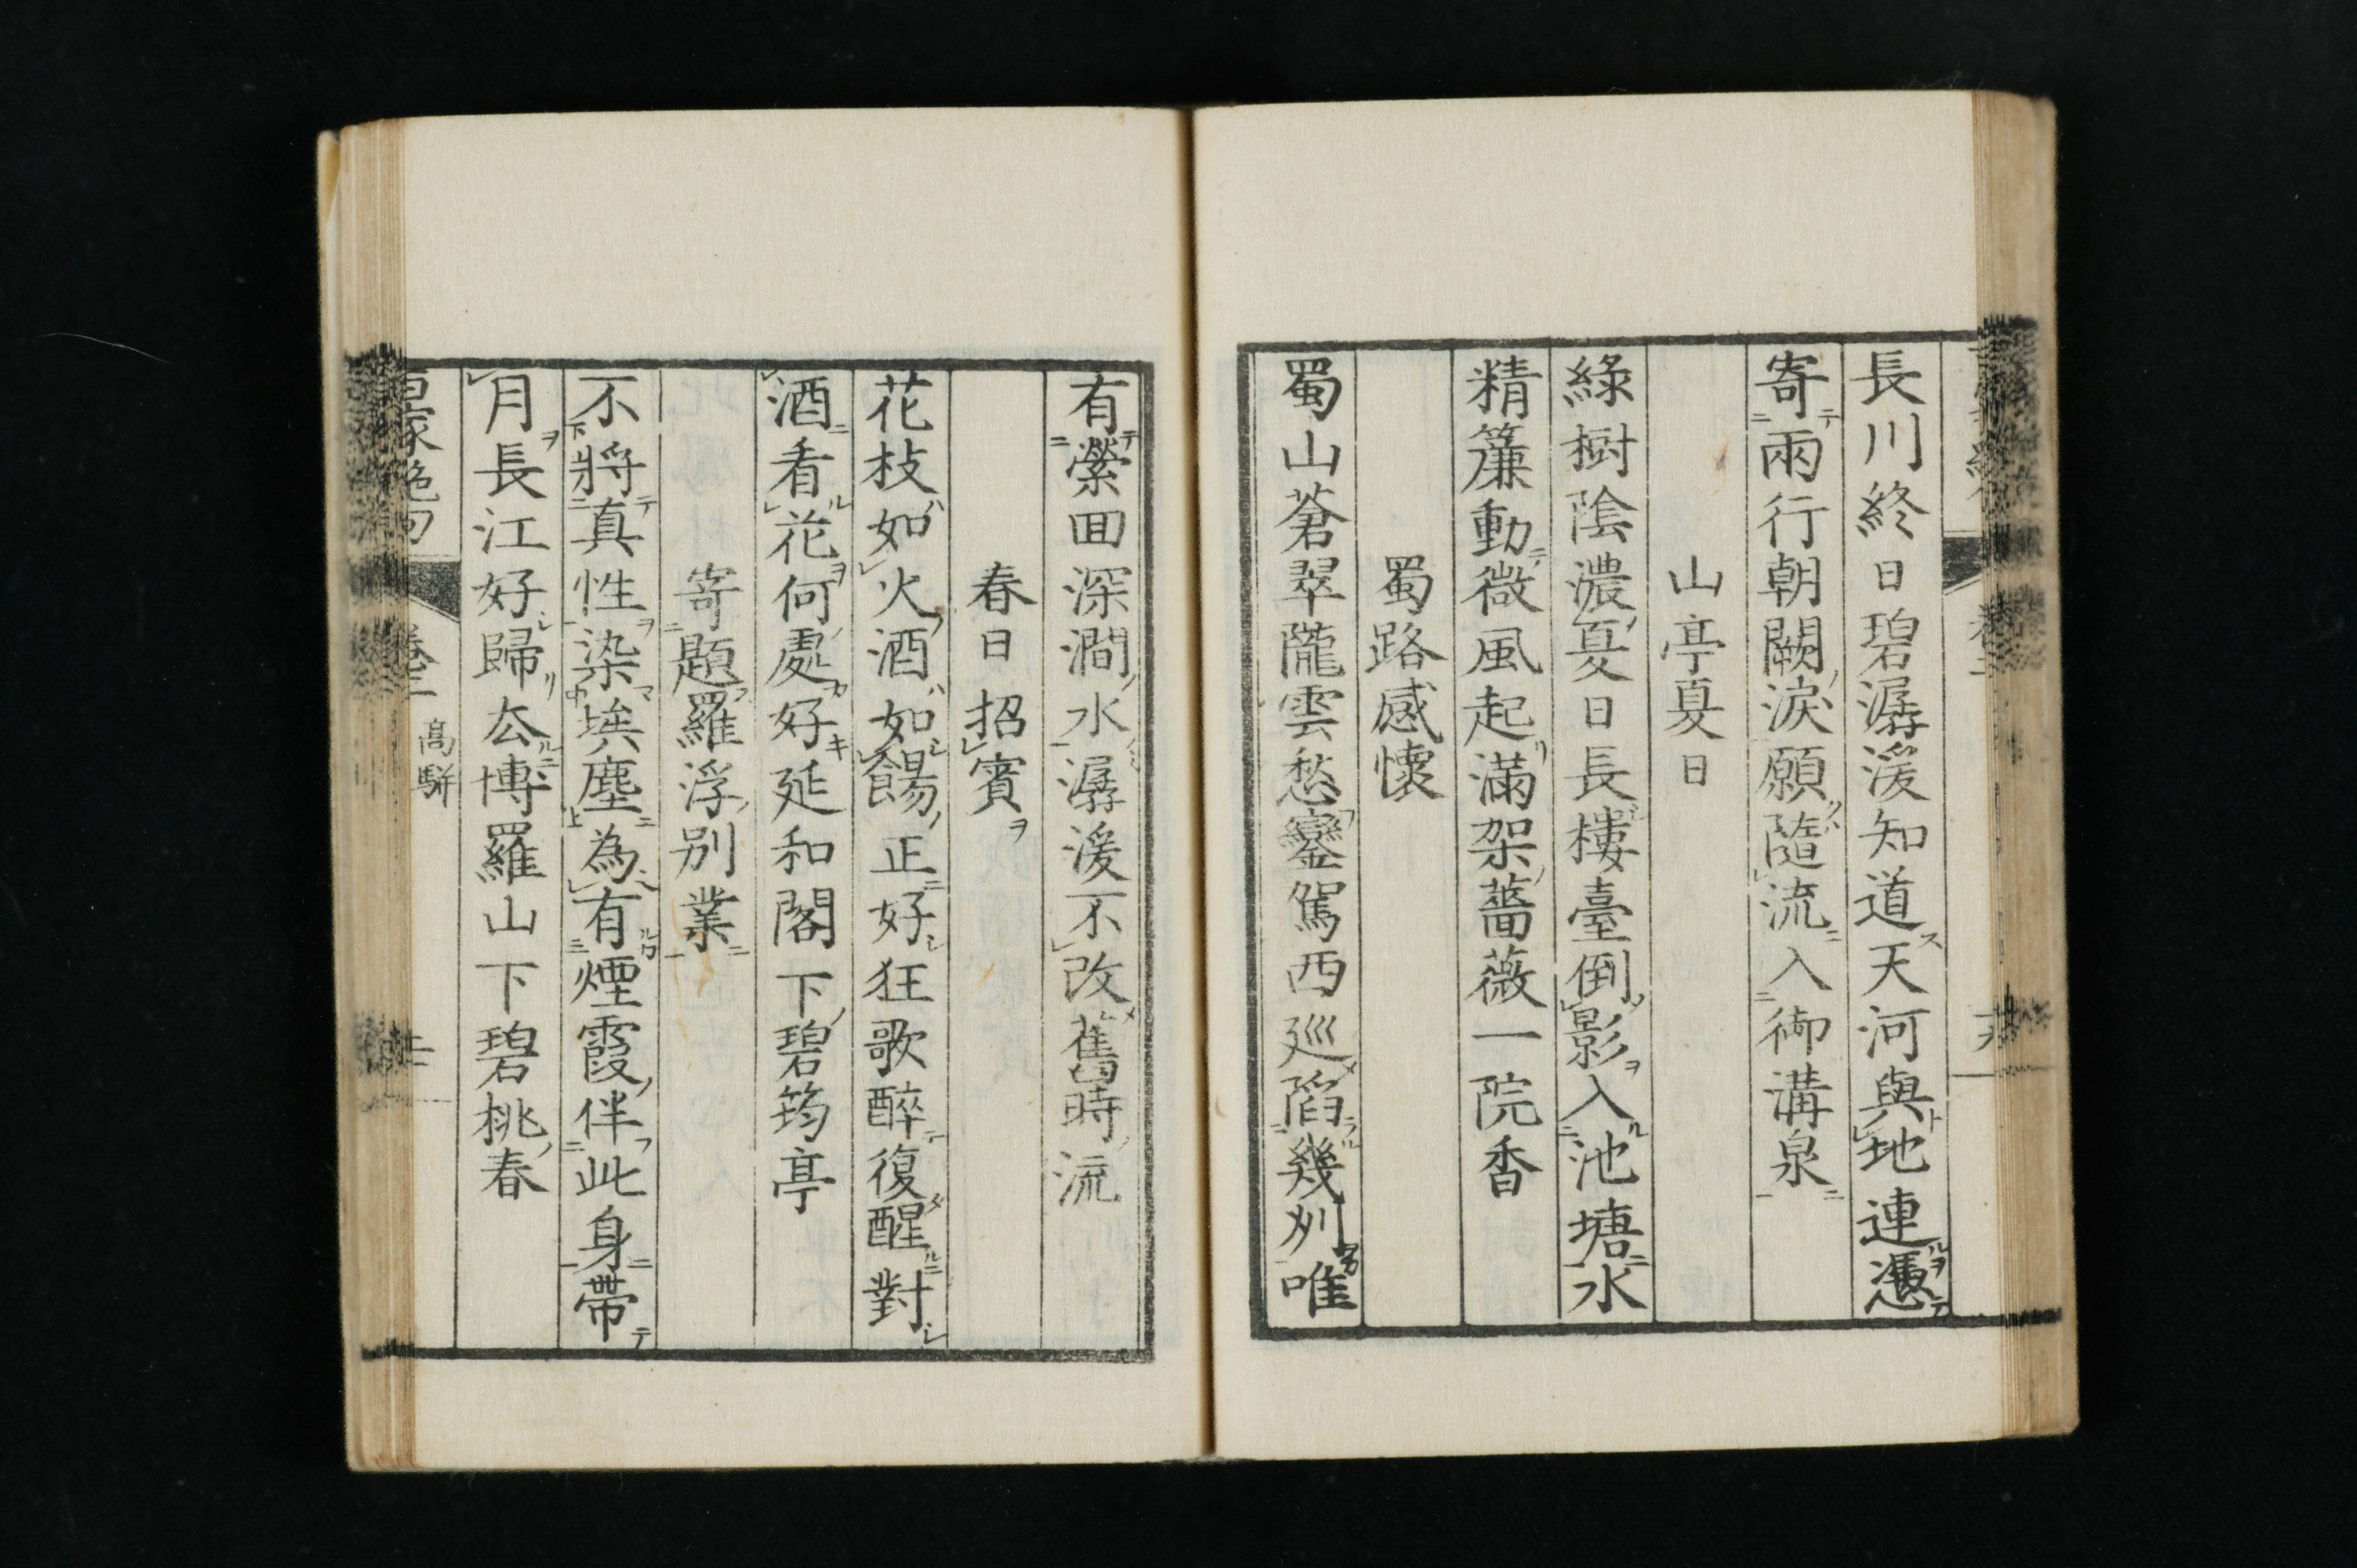 長川終日碧潺湲知道天河與地連憑
寄兩行朝闕淚願隨流入御溝泉
山亭夏日
綠樹陰濃夏日長樓臺倒影入池塘水
精簾動微風起滿架薔薇一院香
蜀路感懷
蜀山蒼翠隴雲愁鑾駕西巡陷幾州唯
有縈回深澗水潺湲不改舊時流
春日招賓
花枝如火酒如餳正好狂歌醉復醒對
酒看花何處好延和閣下碧筠亭
寄題羅浮別業
不將真性染埃塵為有煙霞伴此身帶
月長江好歸去博羅山下碧桃春
高駢